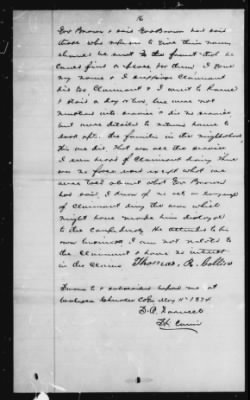 16
Gov Brown & said Gov Brown had said
those who refuse to Give their names
should be sent to the front that he
cared find a place for them I gave
my name & I suppose Claimant
did too, Claimant & I went to home
& staid a day or two, we were not
mustered into service & did no service
but were detailed to return home to
look after the families in the neighborhood
this we did. That was all the service
I ever heard of Claimant doing There
was no force used except what we
were told about what Gov Brown
had said, I know of no act or language
of Claimant during the war which
might have made him disloyal
to the cause, he attended to his
own business, I am not related to
the Claimant & have no interest
in the Claim Thomas R. Collins
Sworn to & subscribed before me at
Cherokee Co Ga May 11th 1874